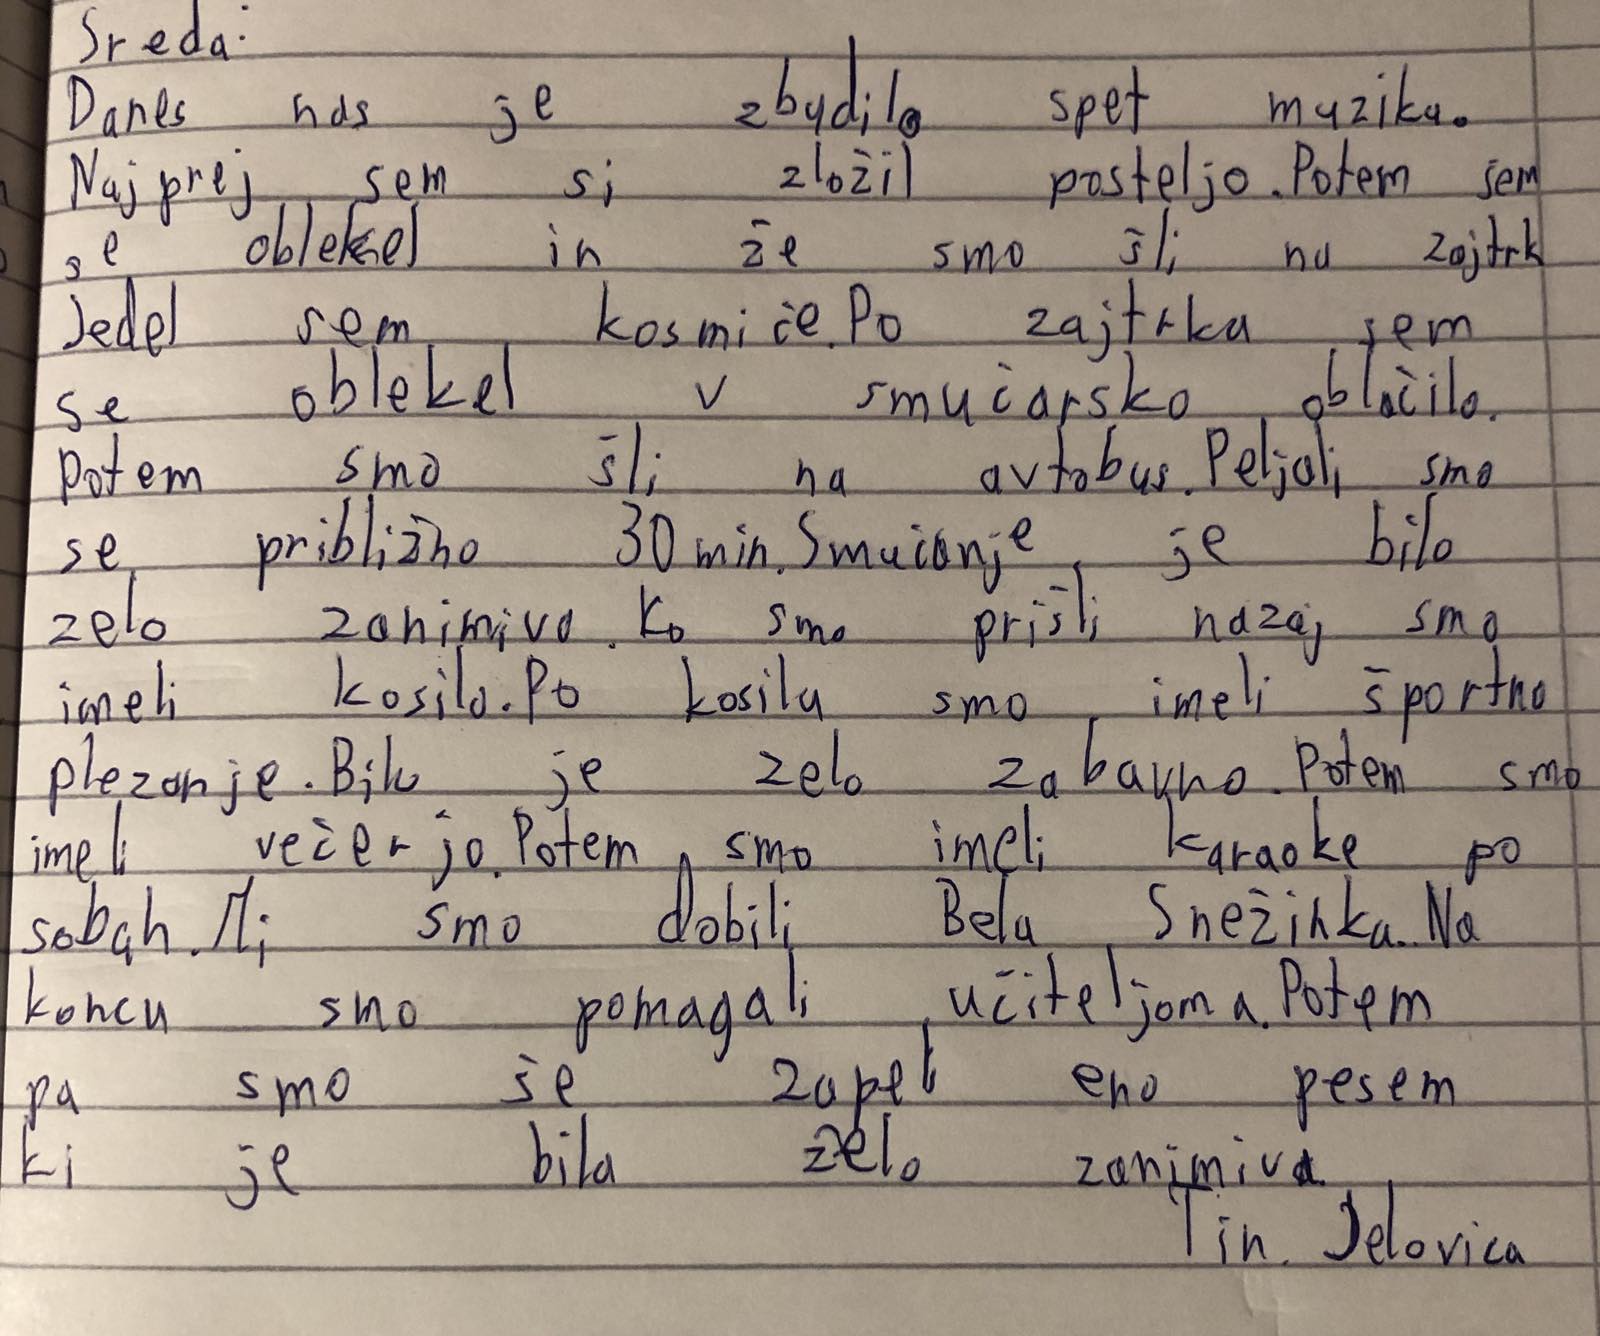 Sreda:
Danes nas je zbudilo spet muzika.
Najprej sem si zložil posteljo. Potem sem
se oblekel in že smo šli na zajtrk
Jedel sem kosmiče. Po zajtrka sem
se oblekel v smučarsko oblačilo.
Potem smo šli na avtobus. Peljali smo
se približno 30 min. Smučanje je bilo
zelo zanimivo. Ko smo prišli nazaj smo
imeli kosilo. Po kosilu smo imeli športno
plezanje. Bilo je zelo zabavno. Potem smo
imeli večerjo. Potem smo imeli karaoke po
sobah. Mi smo dobili Bela Snežinka. Na
koncu smo pomagali učiteljoma. Potem
pa smo še zapeli eno pesem
ki je bila zelo zanimiva
Tin Jelovica